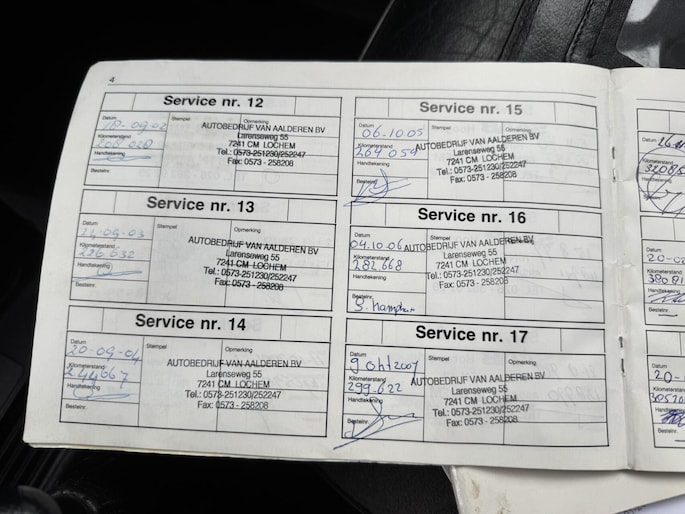 4
Service nr. 12
Datum
Stempel
Opmerking
18-09-02
AUTOBEDRIJF VAN AALDEREN BV
Kilometerstand
Larenseweg 55
208 028
7241 CM LOCHEM
Handtekening
Tel.: 0573-251230/252247
Fax: 0573 - 258208
Bestelnr.
Service nr. 13
Datum
Stempel
Opmerking
24-09-03
AUTOBEDRIJF VAN AALDEREN BV
Kilometerstand
Larenseweg 55
226 032
7241 CM LOCHEM
Handtekening
Tel.: 0573-251230/252247
Fax: 0573 - 258208
Bestelnr.
Service nr. 14
Datum
Stempel
Opmerking
20-09-04
AUTOBEDRIJF VAN AALDEREN BV
Kilometerstand
Larenseweg 55
244067
7241 CM LOCHEM
Handtekening
Tel.: 0573-251230/252247
Fax: 0573 - 258208
Bestelnr.
Service nr. 15
Datum
Stempel
Opmerking
06.10.05
AUTOBEDRIJF VAN AALDEREN BV
Kilometerstand
Larenseweg 55
264 054
7241 CM LOCHEM
Handtekening
Tel.: 0573-251230/252247
Fax: 0573 - 258208
Bestelnr.
Service nr. 16
Datum
Stempel
Opmerking
04.10.06
AUTOBEDRIJF VAN AALDEREN BV
Kilometerstand
Larenseweg 55
282 668
7241 CM LOCHEM
Handtekening
Tel.: 0573-251230/252247
Fax: 0573 - 258208
Bestelnr.
Service nr. 17
Datum
Stempel
Opmerking
9 okt 2007
AUTOBEDRIJF VAN AALDEREN BV
Kilometerstand
Larenseweg 55
299.622
7241 CM LOCHEM
Handtekening
Tel.: 0573-251230/252247
Fax: 0573 - 258208
Bestelnr.
Datum
Kilometerstand
Handtekening
Bestelnr.
Datum
20-0
Kilometerstand
Handtekening
Bestelnr.
Datum
20-
Kilometerstand
Handtekening
Bestelnr.